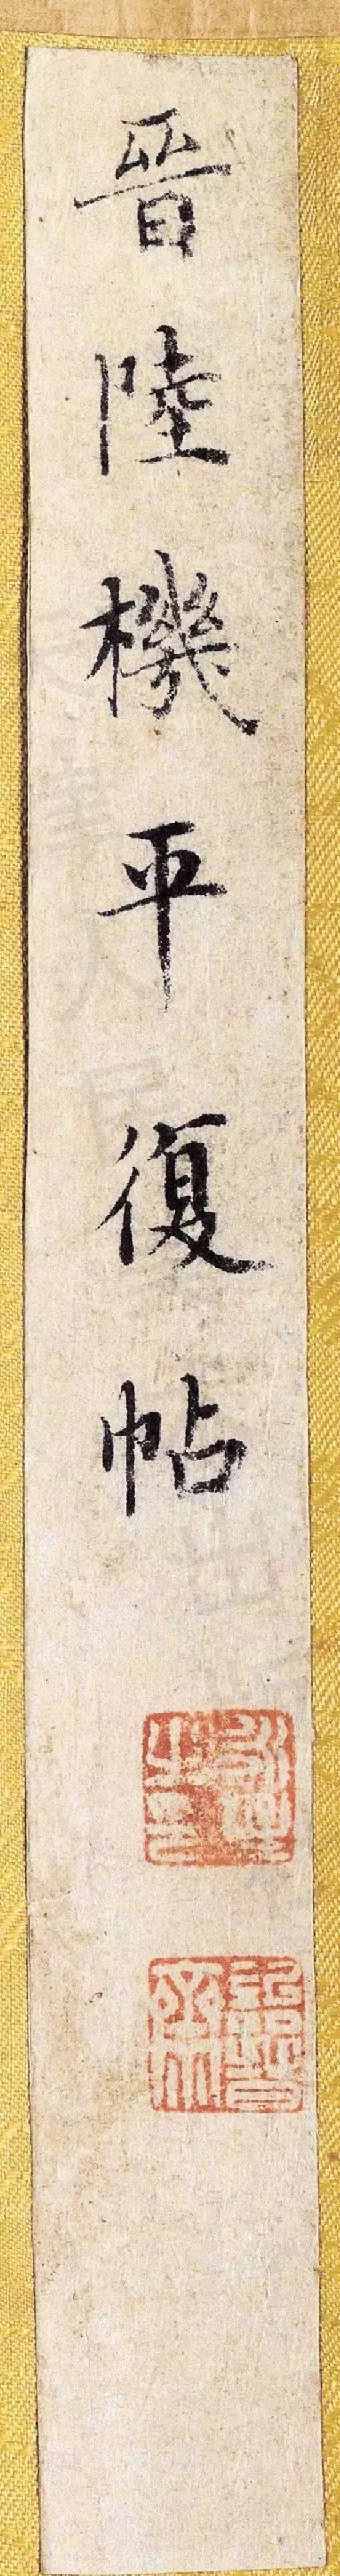 晉陸機平復帖